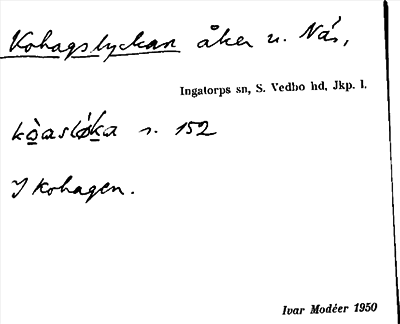 Kohagslyckan åker u. Näs,
Ingatorps sn, S. Vedbo hd, Jkp. l.
s. 152
I kohagen.
Ivar Modéer 1950